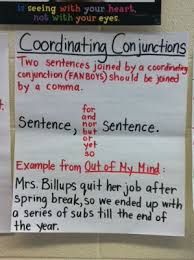 is seeing with your heart,
not with your eyes.
Coordinating Conjunctions
Two sentences joined by a coordinating
conjunction (FANBOYS) should be joined
by a comma.
for
and
nor
Sentence, but Sentence.
or
yet
so
Example from Out of My Mind:
Mrs. Billups quit her job after
spring break, so we ended up with
a series of subs till the end of
the year.